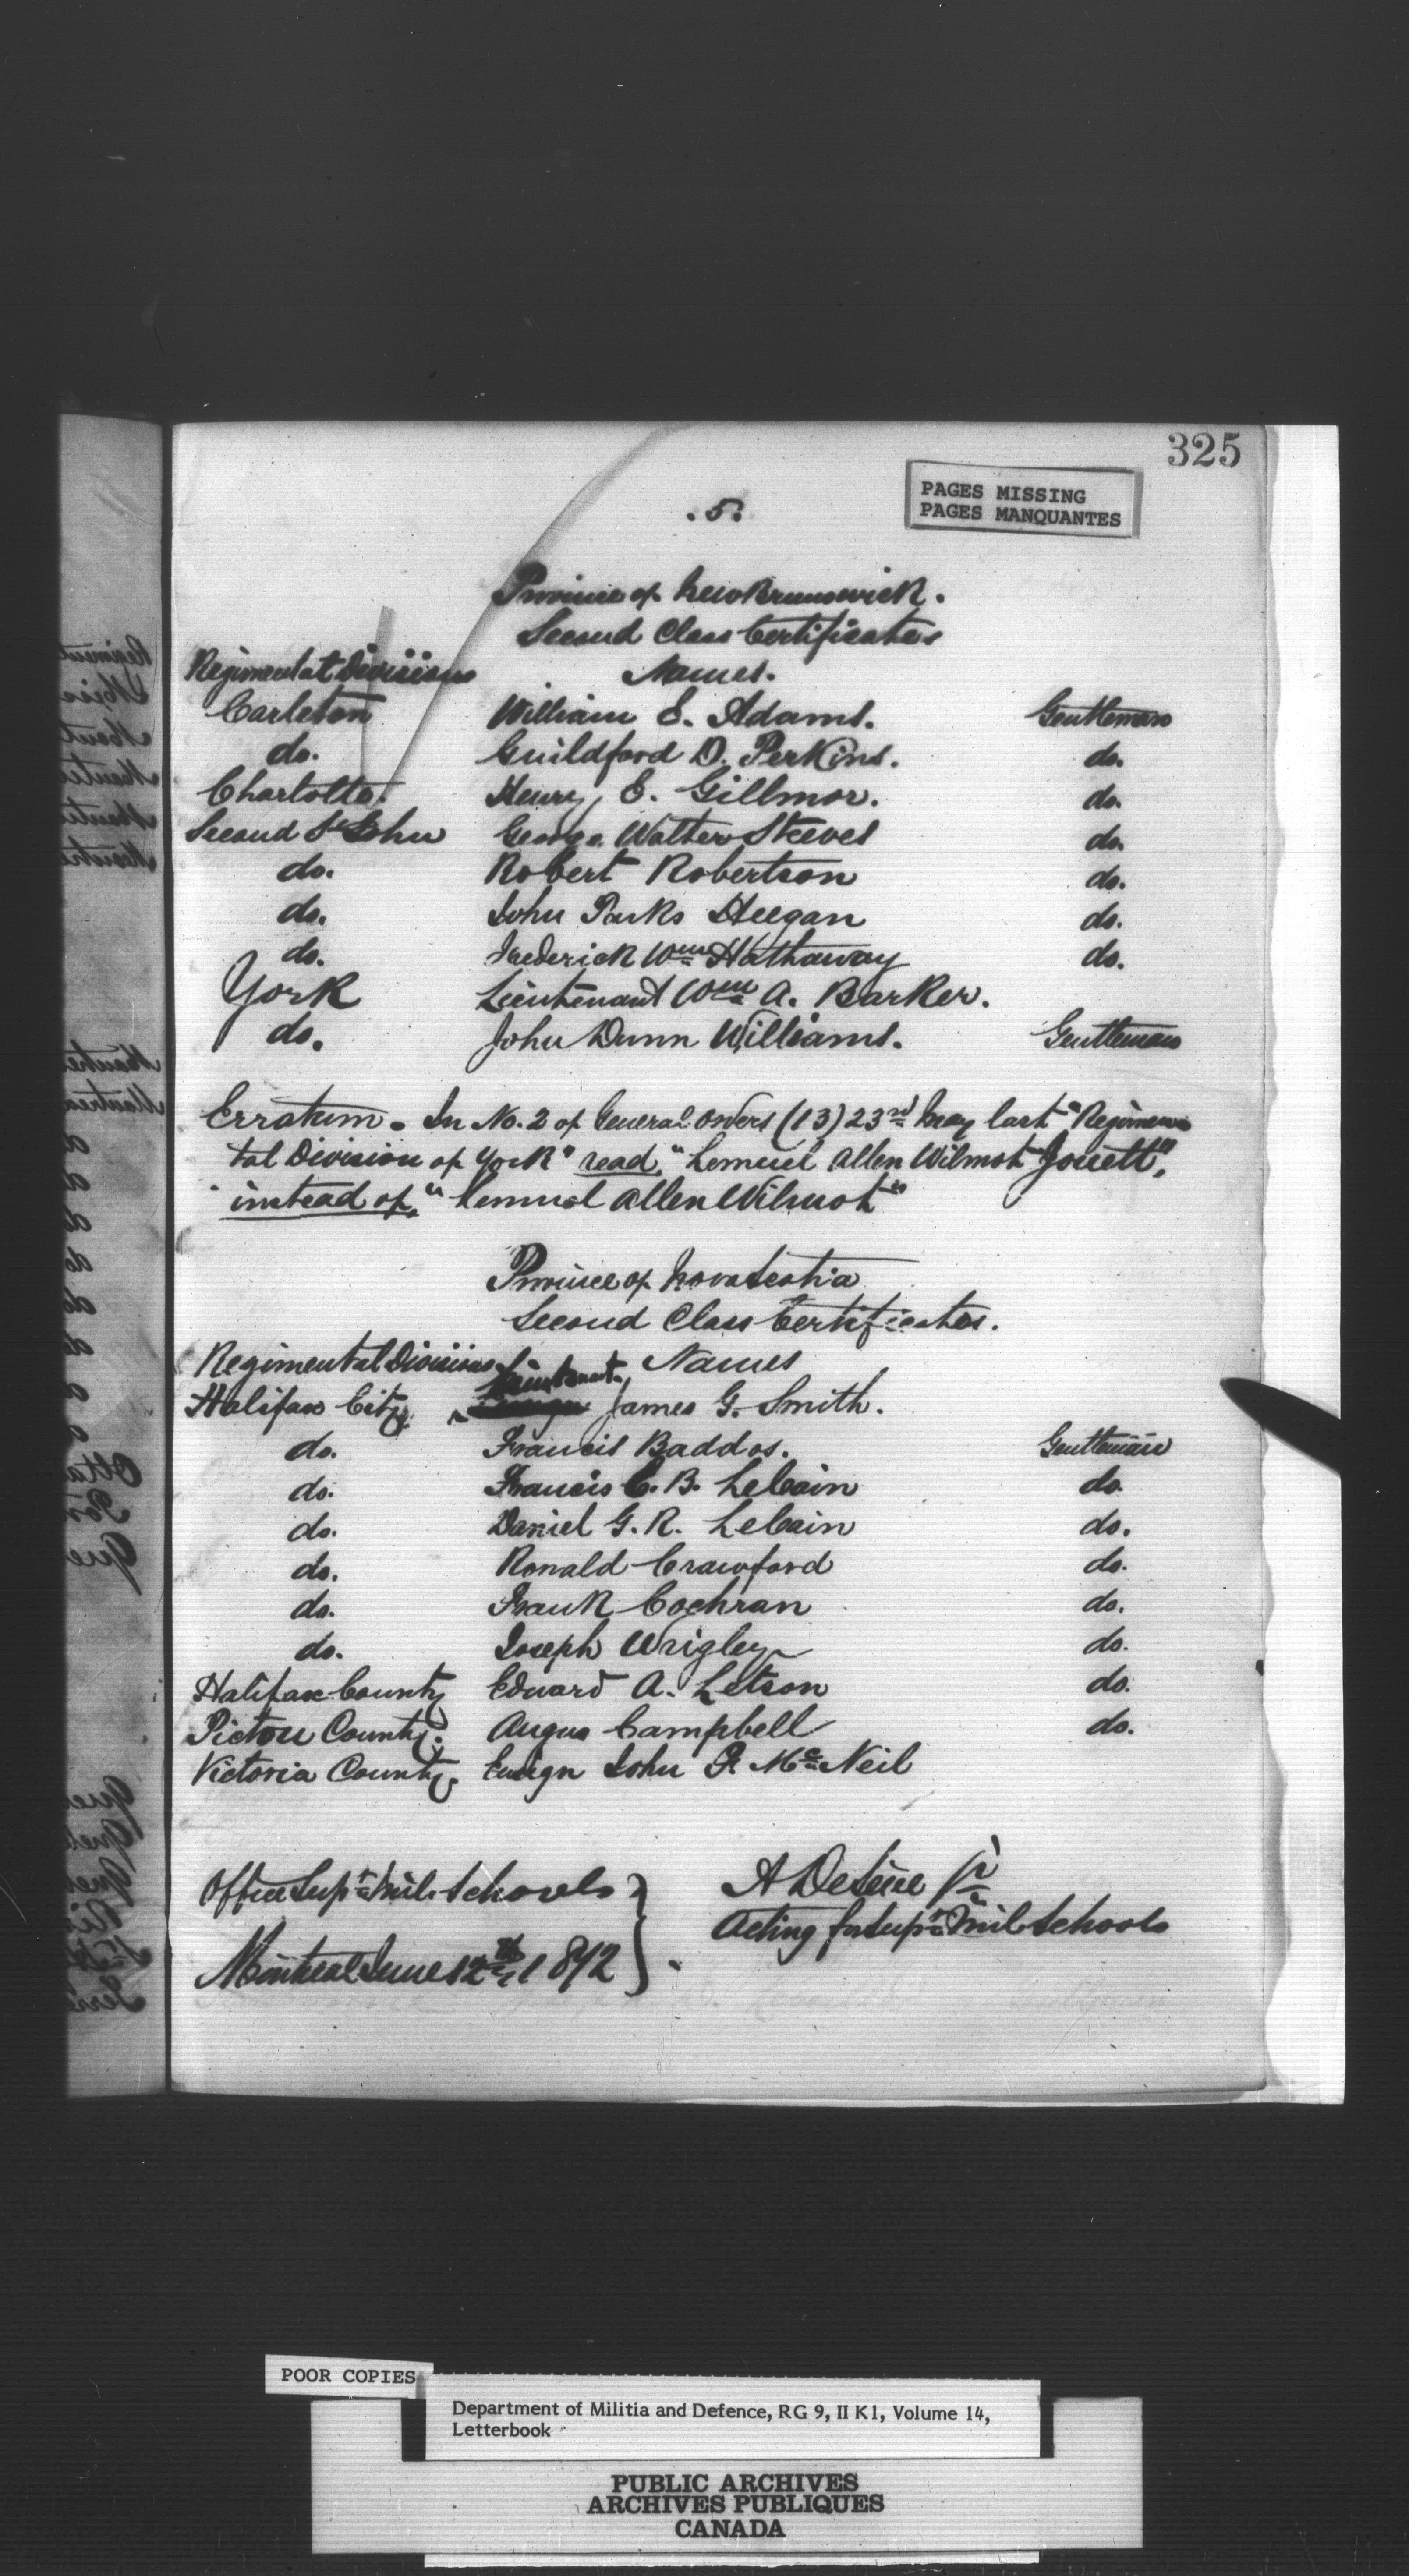 325
PAGES MISSING
PAGES MANQUANTES
.5.
Province of New Brunswick.
Second Class Certificates
Regimental Divisions Names.
Carleton William E. Adams. Gentleman
do. Guildford D. Perkins. do.
Charlotte. Henry E. Gillmor. do.
Second St John George Walter Steeves do.
do. Robert Robertson do.
do. John Parks Heegan do.
do. Frederick Wm Hathaway do.
York Lieutenant Wm A. Barker.
do. John Dunn Williams. Gentleman
Erratum. In No. 2 of General Orders (13) 23rd May last "Regimen
tal Division of York" read, "Lemuel Allen Wilmot Jouett",
instead of, "Lemuel Allen Wilmot"
Province of Nova Scotia
Second Class Certificates.
Regimental Divisions Names
Lieutenant
Halifax City James G. Smith.
do. Francis Baddos. Gentleman
do. Francis C. B. LeCain do.
do. Daniel G. R. LeCain do.
do. Ronald Crawford do.
do. Frank Cochran do.
do. Joseph Wrigley do.
Halifax County Edward A. Letson do.
Pictou County. Angus Campbell do.
Victoria County. Ensign John F. McNeil
Office Supt Mil. Schools } A DeLéne Jr
Acting for Supt Mil Schools
Montreal June 12th, 1872 } .
POOR COPIES
Department of Militia and Defence, RG 9, II K1, Volume 14,
Letterbook
PUBLIC ARCHIVES
ARCHIVES PUBLIQUES
CANADA